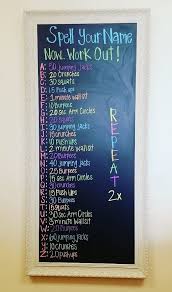 Spell Your Name
Now Work Out!
A: 50 Jumping Jacks
B: 20 Crunches
C: 30 squats
D: 15 Push ups
E: 1 minute wall sit
F: 10 Burpees
G: Arm Circles
H: Squats
I: 30 Jumping Jacks
J: Crunches
K: 10 Push ups
L: 2 minute wall sit
M: 20 Burpees
N: Jumping Jacks
O: Burpees
P: sec. Arm Circles
Q: crunches
R: Push Ups
S: 30 Burpees
T: Squats
U: 30 sec Arm Circles
V: 3 minute wall sit
W: 20 Burpees
X: 60 Jumping Jacks
Y: Crunches
Z: Push ups
REPEAT
2x